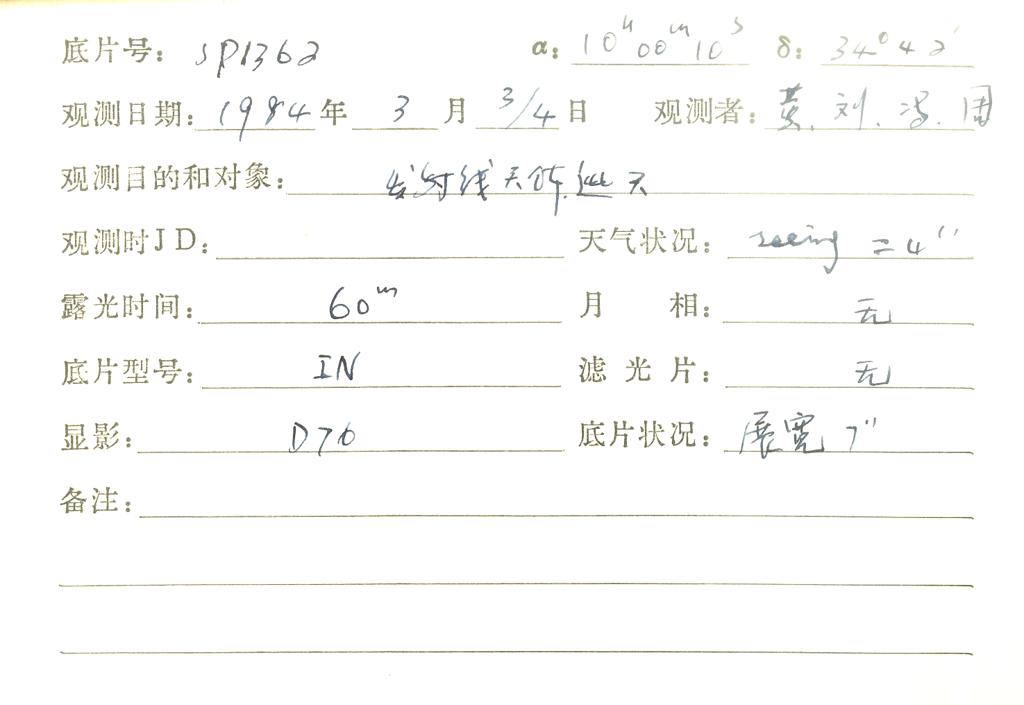 底片号： SP1362 α： 10ʰ 00ᵐ 10ˢ δ： 34° 42′
观测日期： 1984 年 3 月 3/4 日 观测者： 黄、刘、冯、周
观测目的和对象： 发射线天体巡天
观测时JD： 天气状况： seeing = 4″
露光时间： 60ᵐ 月 相： 无
底片型号： IN 滤光片： 无
显影： D76 底片状况： 展宽 7″
备注：